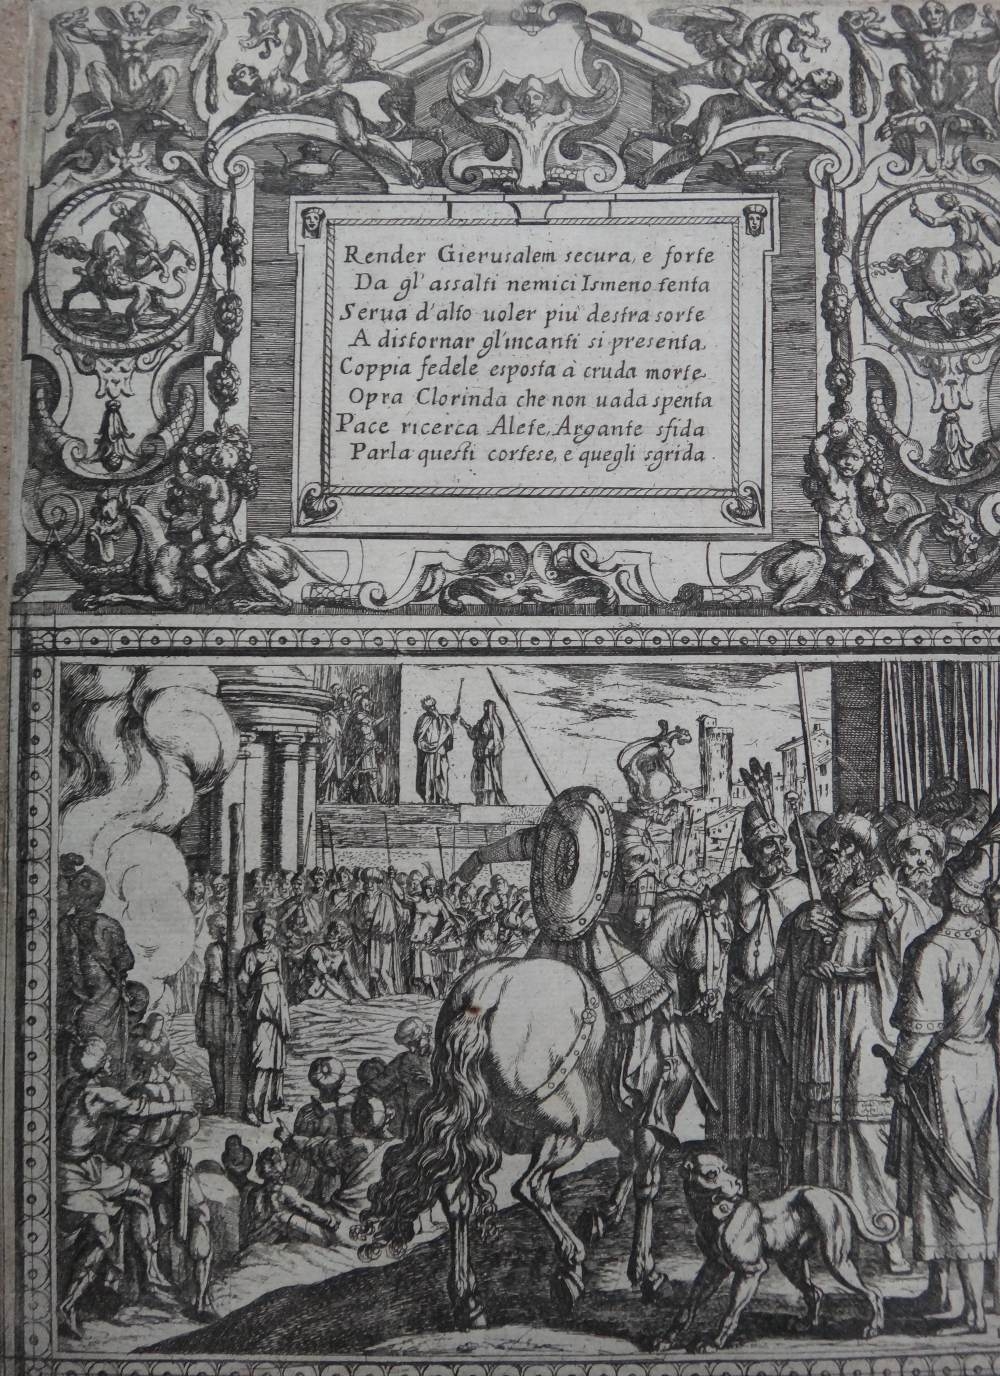 Render Gierusalem secura, e forte
Da gl' assalti nemici Ismeno tenta
Serua d'alto uoler piu destra sorte
A distornar gl'incanti si presenta
Coppia fedele esposta à cruda morte
Opra Clorinda che non uada spenta
Pace ricerca Alete, Argante sfida
Parla questi cortese, e quegli sgrida.